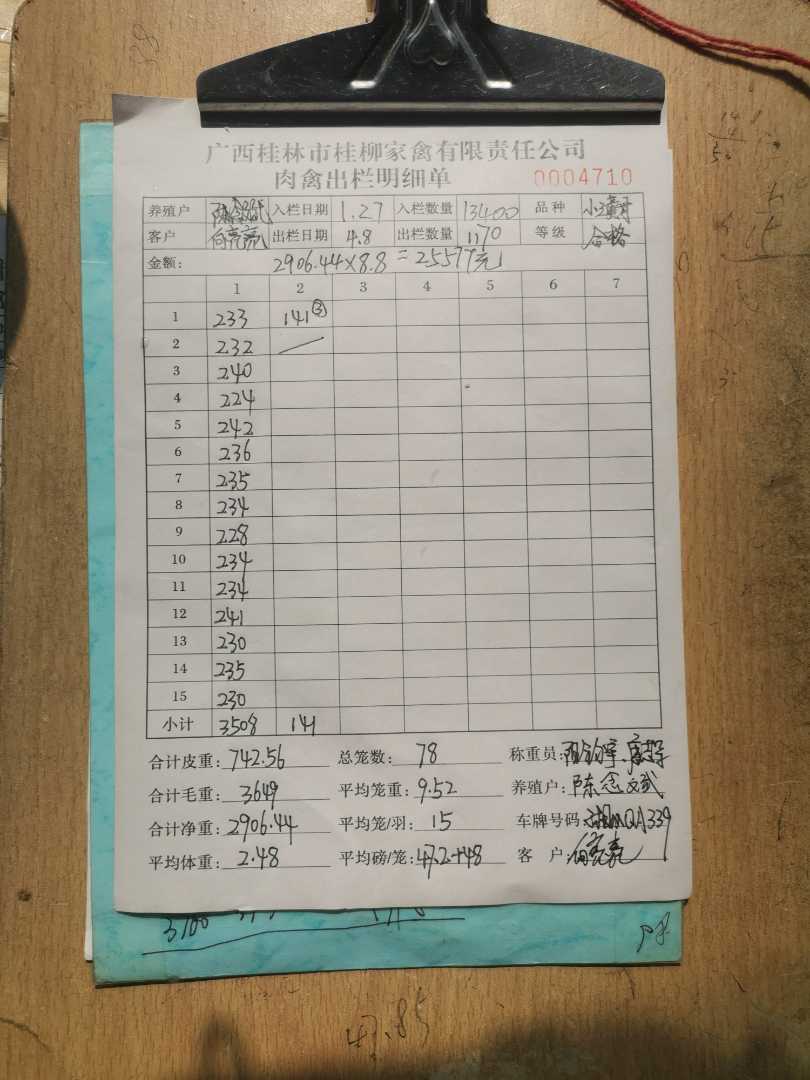 广西桂林市桂柳家禽有限责任公司
肉禽出栏明细单 0004710
养殖户 入栏日期 1.27 入栏数量 13400 品种
客户 出栏日期 4.8 出栏数量 1170 等级 合格
金额: 2906.44×8.8=25577元
1 2 3 4 5 6 7
1 233 141③
2 232
3 240
4 224
5 242
6 236
7 235
8 234
9 228
10 234
11 234
12 241
13 230
14 235
15 230
小计 3508 141
合计皮重: 742.56 总笼数: 78 称重员:
合计毛重: 3649 平均笼重: 9.52 养殖户: 陈念斌
合计净重: 2906.44 平均笼/羽: 15 车牌号码:
平均体重: 2.48 平均磅/笼: 47.2+48 客户:
47.85